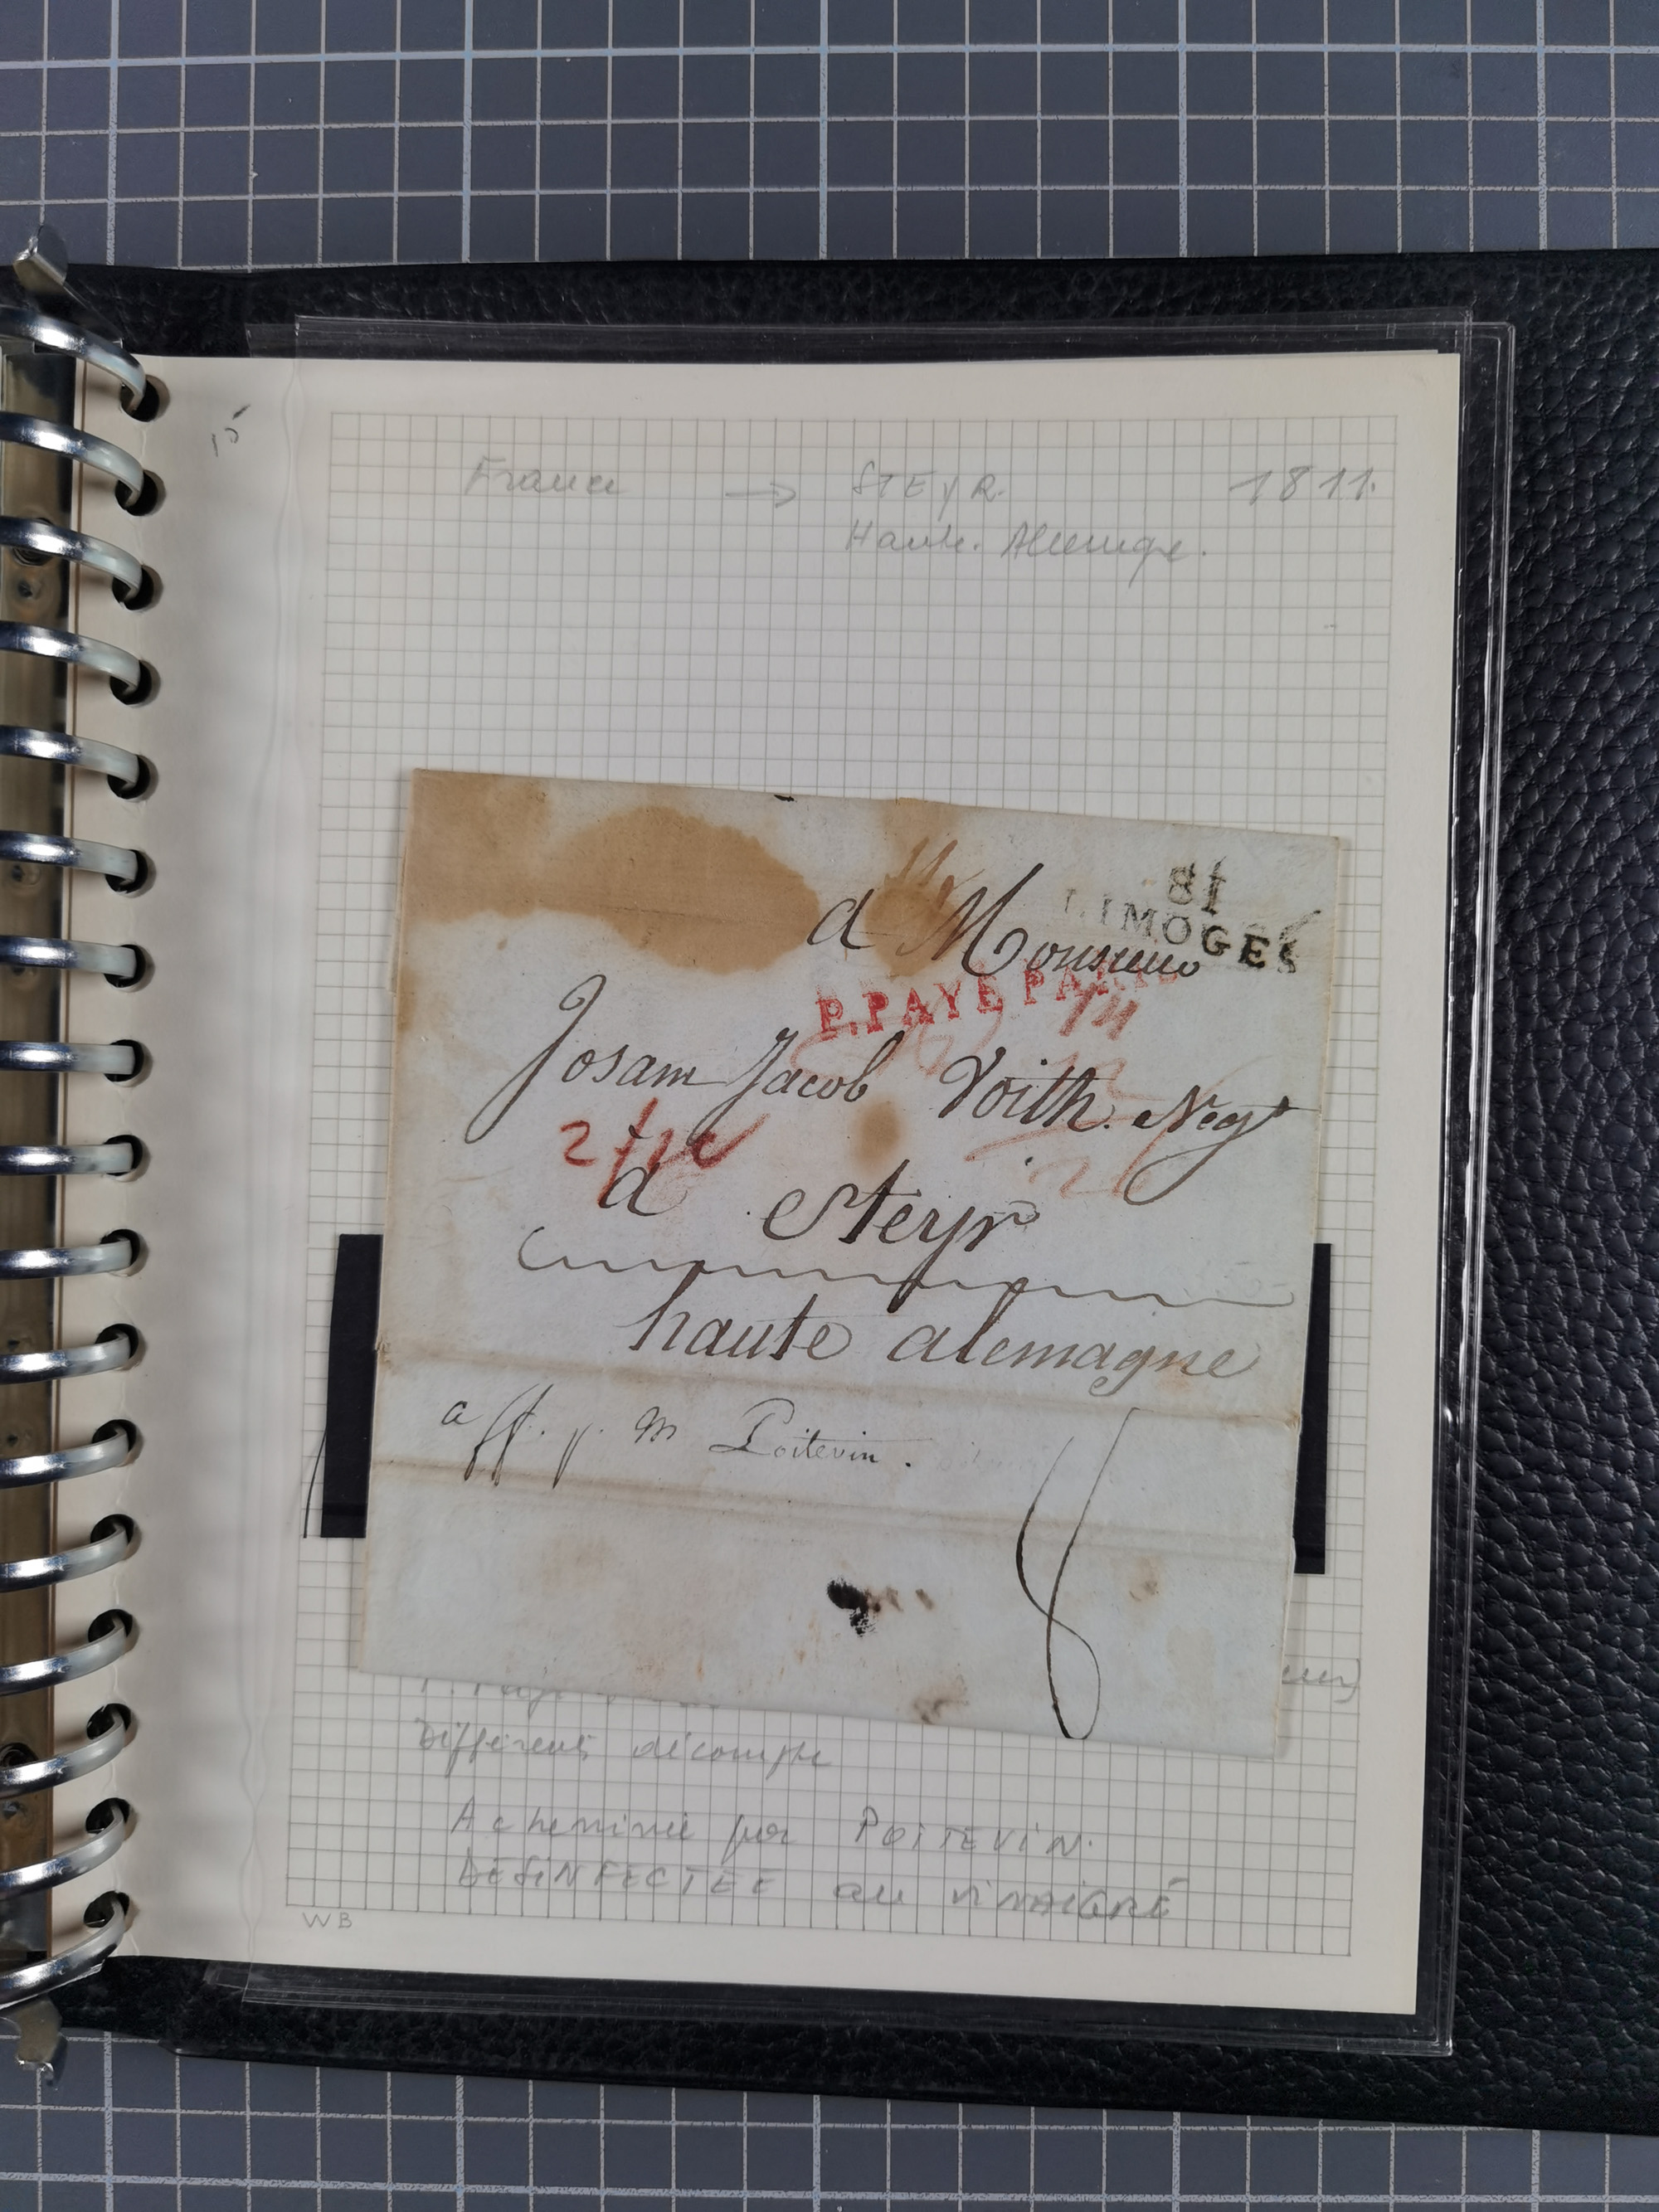 15
France → STEYR. 1811.
Haute. Allemagne.
81
LIMOGES
a Monsieur
P.PAYÉ PARIS
14
Josam Jacob Voith. Negt
2f12
a Steyr
haute alemagne
aff. p. M Poitevin.
Différents décompte
Acheminée par POITEVIN.
DESINFECTÉE au VINAIGRE
WB